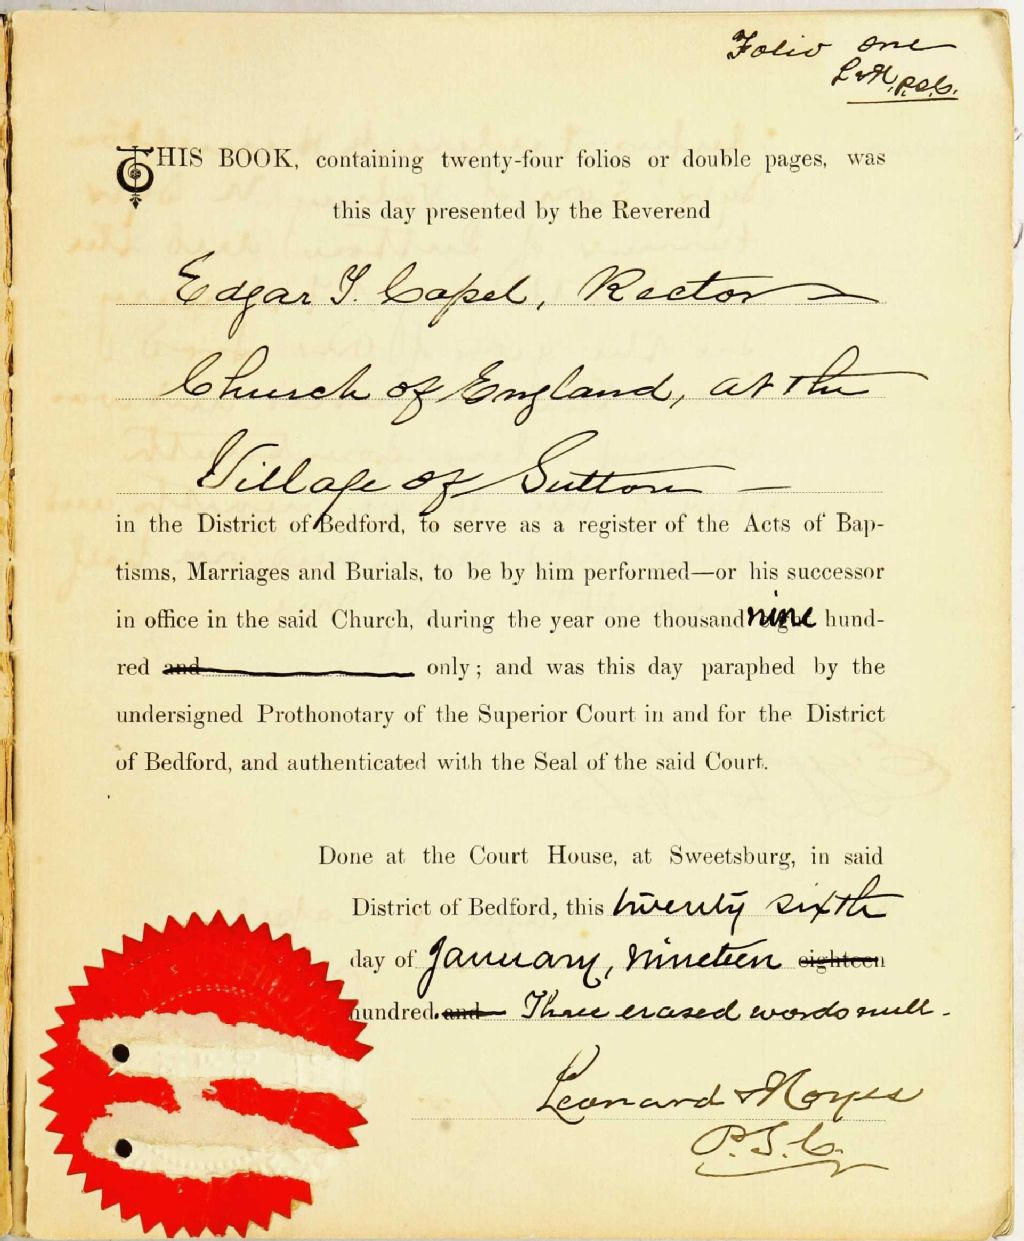 Folio one
L & N, P.S.C.
THIS BOOK, containing twenty-four folios or double pages, was
this day presented by the Reverend
Edgar T. Capel, Rector
Church of England, at the
Village of Sutton —
in the District of Bedford, to serve as a register of the Acts of Bap-
tisms, Marriages and Burials, to be by him performed—or his successor
in office in the said Church, during the year one thousand nine hund-
red and only; and was this day paraphed by the
undersigned Prothonotary of the Superior Court in and for the District
of Bedford, and authenticated with the Seal of the said Court.
Done at the Court House, at Sweetsburg, in said
District of Bedford, this twenty sixth
day of January, nineteen eighteen
hundred and Three erased words null.
Leonard & Noyes
P.S.C.